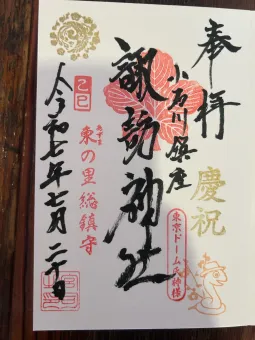 奉拝
慶祝
小石川鎮座
東京ドーム氏神様
諏訪神社
あずま
東の里総鎮守
乙巳
令和七年七月二十日